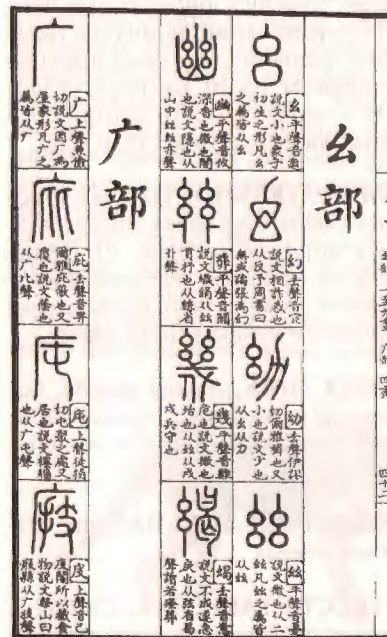 幺部
幺平聲音
說文小也象子
初生之形凡幺
之屬皆从幺
幻去聲音
說文相詐惑也
从反予周書曰
無或譸張為幻
幼去聲伊謬
切爾雅鞠也又
小也說文少也
从幺从力
平聲音
說文微也从二
幺凡𢆶之屬皆
从𢆶
幽平聲音攸
深杳也微也闇
也說文隱也从
山中𢆶𢆶亦聲
平聲音關
說文織絹从糸
貫杼也从𢆶省
丱聲
幾平聲音雞
危也說文微也
殆也从𢆶从戍
戍兵守也
去聲音
說文不成遂急
戾也从弦省曷
聲讀若瘞葬
广部
广上聲魚儉
切說文因厂為
屋象形凡广之
屬皆从广
庇去聲音畀
爾雅庇廕也又
覆也說文蔭也
从广比聲
庉上聲徒損
切屯聚之處又
居也說文樓牆
也从广屯聲
庋上聲音己
庋閣所以藏食
物說文祭山曰
庪縣从广技聲